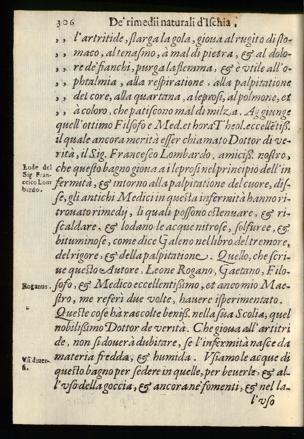 306 De' rimedii naturali d'Ischia,
,, l'artritide, slarga la gola, gioua al rugito di sto-
,, maco, al tenasmo, à mal di pietra, & al dolo-
,, re de' fianchi, purga la flemma, & è vtile all'o-
,, phtalmia, alla respiratione, alla palpitatione
,, del core, alla quartana, a leprosi, al polmone, et
,, à coloro, che patiscono mal di milza. Aggiunge
quell'ottimo Filsofo e Med. et hora Theol. eccellētiss.
il quale ancora merità esser chiamato Dottor di ve-
rità, il Sig. Francesco Lombardo, amiciss. nostro,
Lode del Sig. Fran- cesco Lom bardo.
che questo bagno gioua ai leprosi nel principio dell'in
fermità, & intorno alla palpitatione del cuore, dis-
se, gli antichi Medici in questa infermità hanno ri-
trouato rimedij, li quali possono estenuare, & ri-
scaldare, & lodano le acque nitrose, solfuree, &
bituminose, come dice Galeno nel libro del tremore,
del rigore, & della palpitatione. Quello, che scri
ue questo Autore. Leone Rogano, Gaetano, Filo-
Roganus.
sofo, & Medico eccellentissimo, et anco mio Mae-
stro, me referì due volte, hauere isperimentato.
Queste cose hà raccolte beniss. nella sua Scolia, quel
nobilissimo Dottor de verità. Che gioua all'artitri
de, non si douerà dubitare, se l'infermità nasce da
materia fredda, & humida. Vsiamo le acque di
Vsi diuer- si.
questo bagno per sedere in quelle, per beuerle, & al
l'vso della goccia, & ancora nè fomenti, & nel la-
l'vso